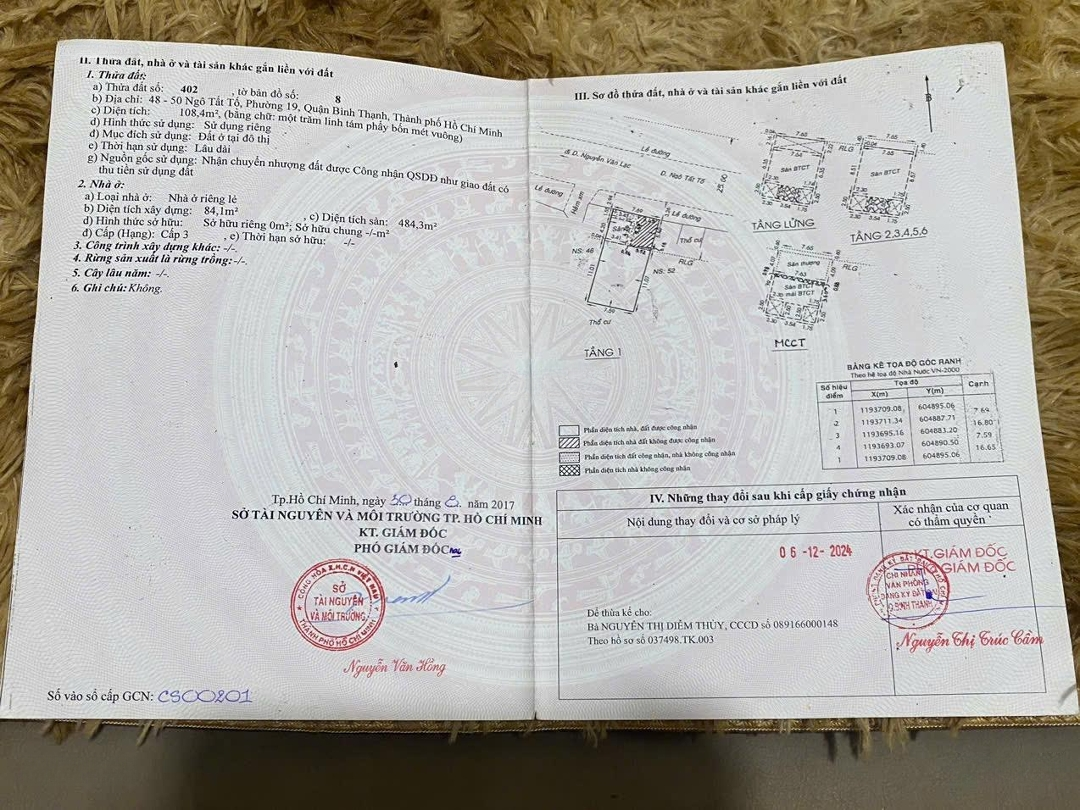 II. Thửa đất, nhà ở và tài sản khác gắn liền với đất
1. Thửa đất:
a) Thửa đất số: 402 , tờ bản đồ số: 8
b) Địa chỉ: 48 - 50 Ngô Tất Tố, Phường 19, Quận Bình Thạnh, Thành phố Hồ Chí Minh
c) Diện tích: 108,4m², (bằng chữ: một trăm linh tám phẩy bốn mét vuông)
d) Hình thức sử dụng: Sử dụng riêng
đ) Mục đích sử dụng: Đất ở tại đô thị
e) Thời hạn sử dụng: Lâu dài
g) Nguồn gốc sử dụng: Nhận chuyển nhượng đất được Công nhận QSDĐ như giao đất có
thu tiền sử dụng đất
2. Nhà ở:
a) Loại nhà ở: Nhà ở riêng lẻ
b) Diện tích xây dựng: 84,1m² , c) Diện tích sàn: 484,3m²
d) Hình thức sở hữu: Sở hữu riêng 0m²; Sở hữu chung -/-m²
đ) Cấp (Hạng): Cấp 3 , e) Thời hạn sở hữu: -/-
3. Công trình xây dựng khác: -/-.
4. Rừng sản xuất là rừng trồng: -/-.
5. Cây lâu năm: -/-.
6. Ghi chú: Không.
Tp.Hồ Chí Minh, ngày 30 tháng 8. năm 2017
SỞ TÀI NGUYÊN VÀ MÔI TRƯỜNG TP. HỒ CHÍ MINH
KT. GIÁM ĐỐC
PHÓ GIÁM ĐỐC
CỘNG HÒA X.H.C.N VIỆT NAM
SỞ
TÀI NGUYÊN
VÀ MÔI TRƯỜNG
THÀNH PHỐ HỒ CHÍ MINH
Nguyễn Văn Hồng
Số vào sổ cấp GCN: CS00201
III. Sơ đồ thửa đất, nhà ở và tài sản khác gắn liền với đất
B
Lề đường
đi D. Nguyễn Văn Lạc
D. Ngô Tất Tố
25.00
Lề đường
Hẻm xm
Lề đường
Thổ cư
RLG
NS: 46
NS: 52
11.01
11.07
7.59
Thổ cư
TẦNG 1
7.65
RLG
7.64
Sàn BTCT
TẦNG LỬNG
7.65
Sàn BTCT
Sàn BTCT
TẦNG 2,3,4,5,6
7.65
Sân thượng
RLG
7.63
Sàn BTCT
mái BTCT
3.54
MCCT
BẢNG KÊ TỌA ĐỘ GÓC RANH
Theo hệ tọa độ Nhà Nước VN-2000
Số hiệu điểm Tọa độ Cạnh
X(m) Y(m)
1 1193709.08 604895.06
7.64
2 1193711.34 604887.71
16.80
3 1193695.16 604883.20
7.59
4 1193693.07 604890.50
16.65
1 1193709.08 604895.06
Phần diện tích nhà, đất được công nhận
Phần diện tích nhà đất không được công nhận
Phần diện tích đất công nhận, nhà không công nhận
Phần diện tích nhà không công nhận
IV. Những thay đổi sau khi cấp giấy chứng nhận
Nội dung thay đổi và cơ sở pháp lý
Xác nhận của cơ quan
có thẩm quyền
06-12-2024
KT.GIÁM ĐỐC
PHÓ GIÁM ĐỐC
CHI NHÁNH
VĂN PHÒNG
ĐĂNG KÝ ĐẤT ĐAI
Q.BÌNH THẠNH
Để thừa kế cho:
Bà NGUYỄN THỊ DIỄM THÚY, CCCD số 089166000148
Theo hồ sơ số 037498.TK.003
Nguyễn Thị Trúc Cầm